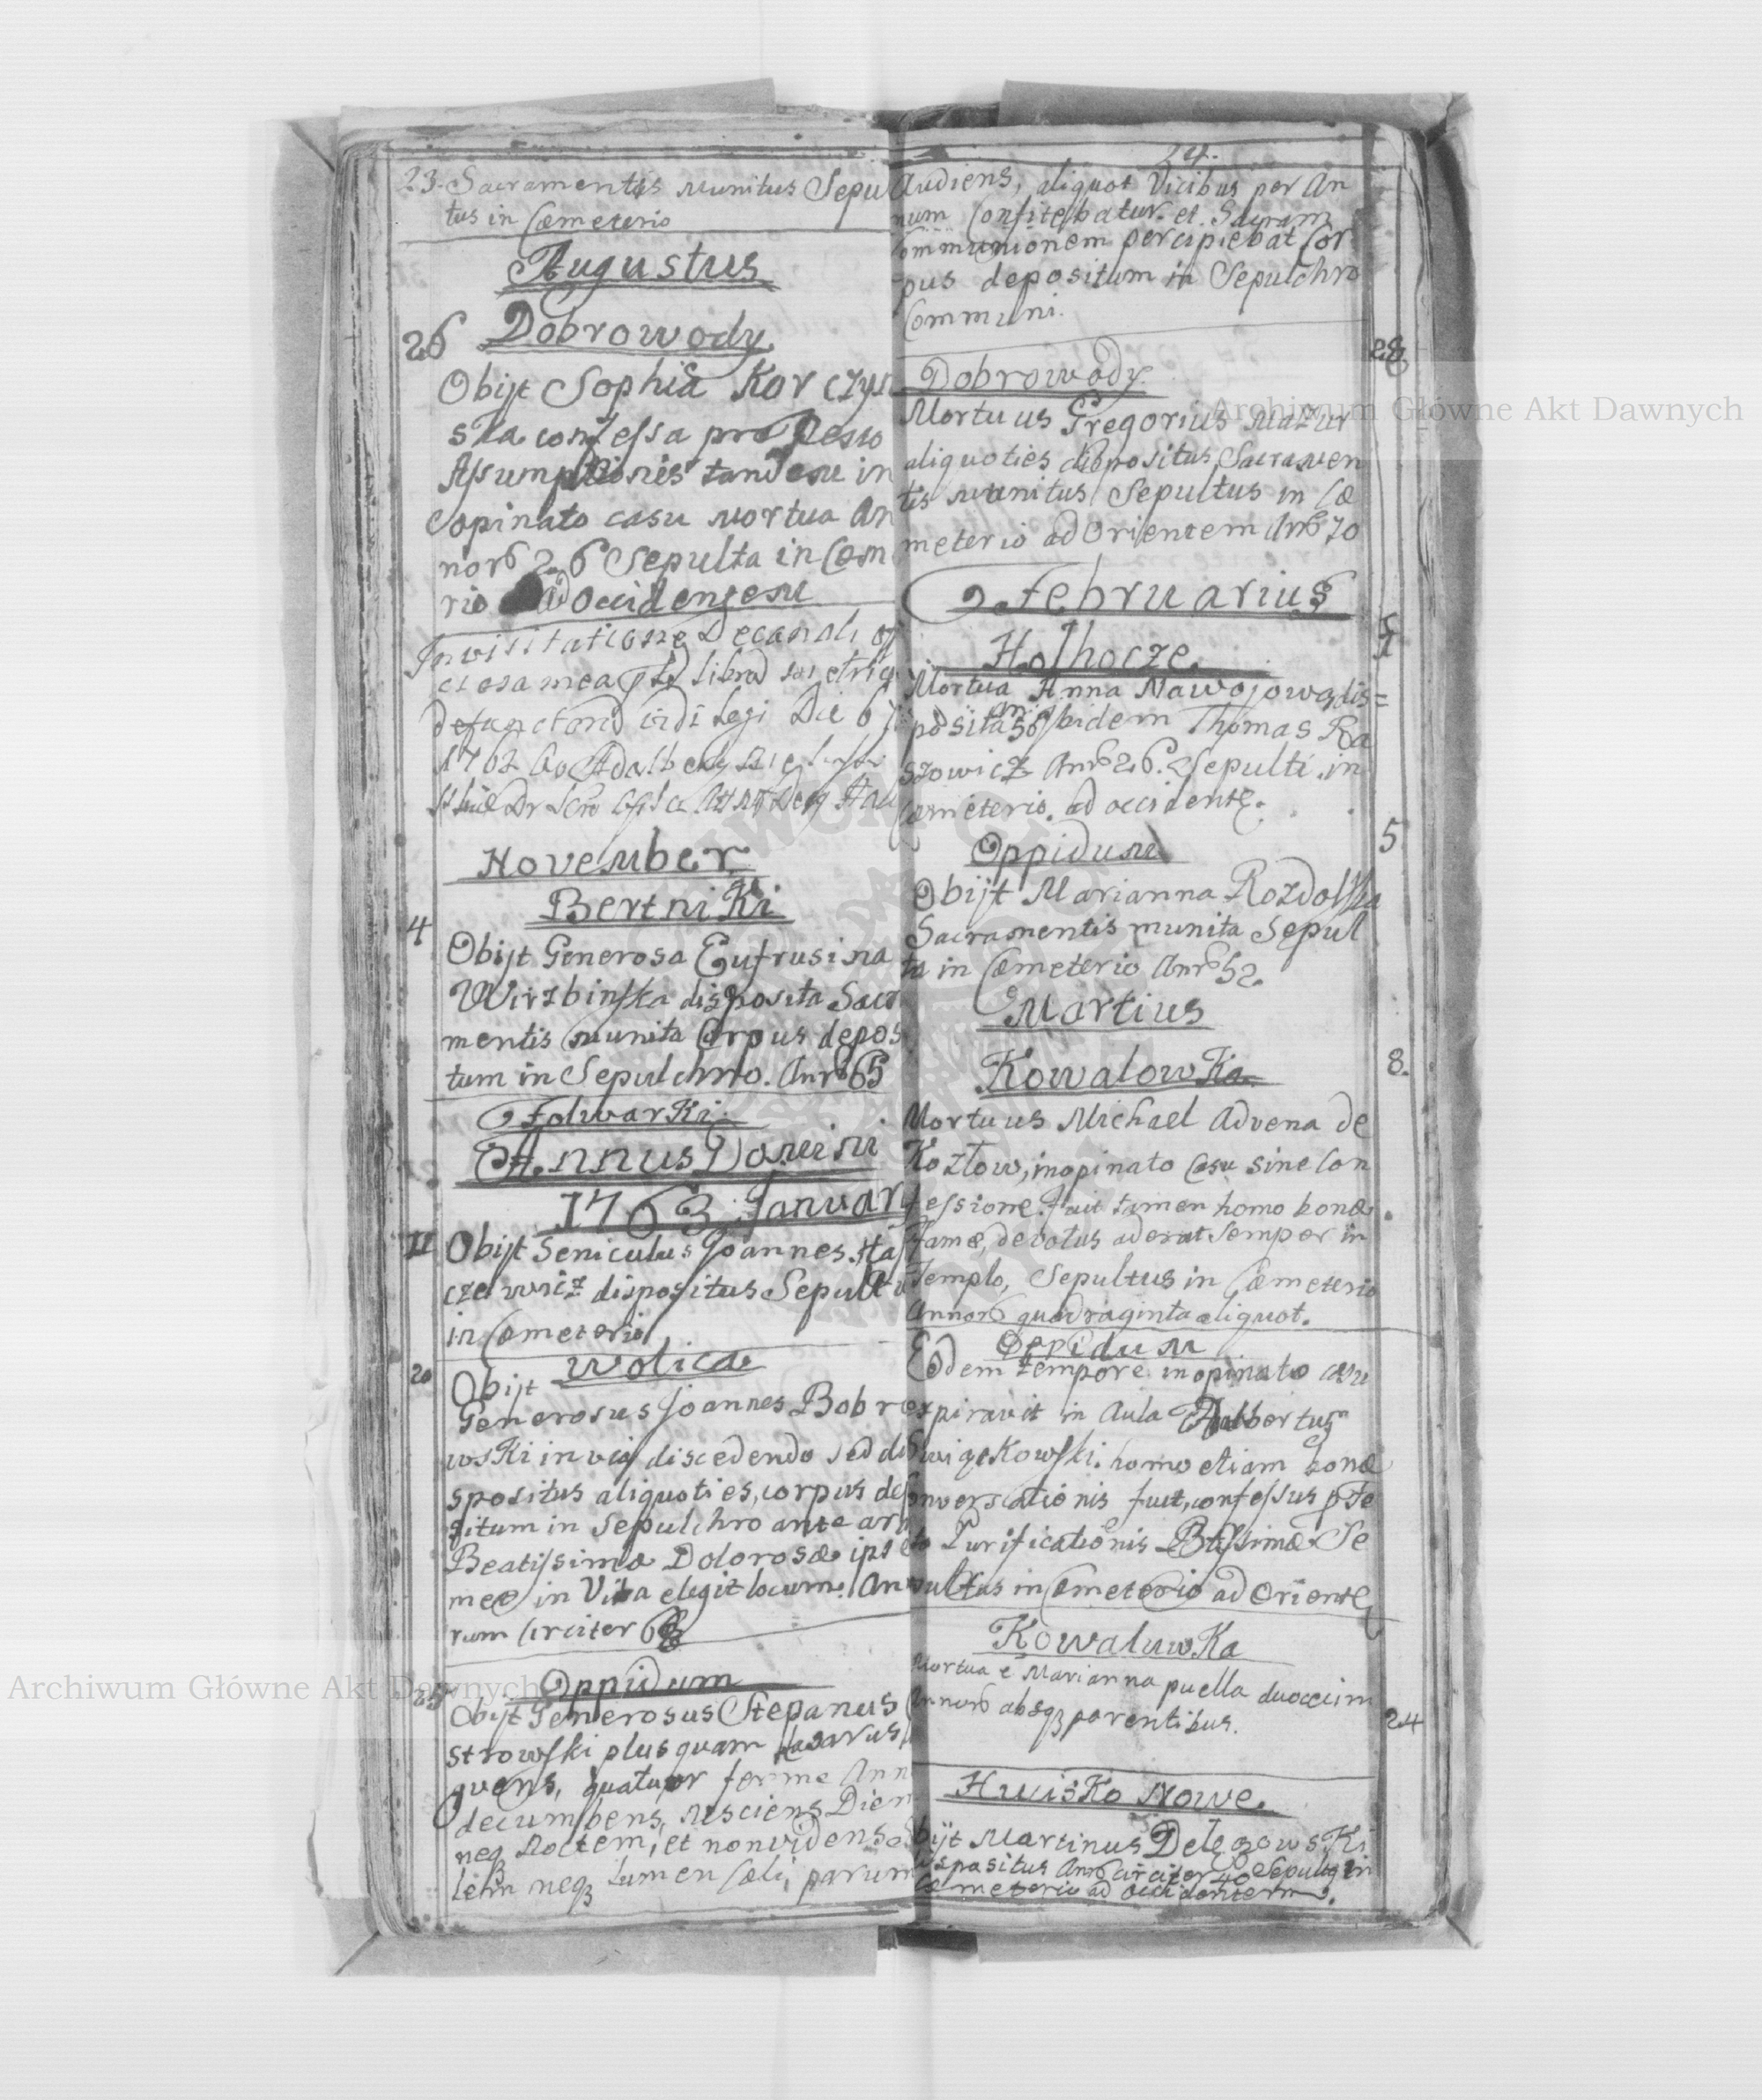 23. Sacramentis Munitus Sepu
tus in Cœmeterio
Augustus
26 Dobrowody
Obijt Sophia Kor czyn
ska confessa pro Festo
Assumptionis tandem in
opinato casu Mortua An
nor 26 Sepulta in Cœm
rio ad Occidentem
In visitatione Decanali
defunctorū vidi legi Die 6
1762
November
Bertniki
4
Obijt Generosa Eufrusina
Wirzbinska disposita Sacra
mentis munita Corpus depos
tum in Sepulchro. Anr 65
Folwarki
Annus Domini
1763 Januar
11 Obijt Seniculus Joannes Sta
czewicz dispositus Sepult
in Cœmeterio
Wolica
20 Obijt
Generosus Joannes Bobr
wski in via discedendo sed di
spositus aliquoties, corpus de
situm in Sepulchro ante ar
Beatissimæ Dolorosæ ipse
met in Vita elegit locum. An
rum circiter 68
Oppidum
Obijt Generosus Stepanus
strowski plus quam
quens, quatuor ferme Ann
decumbens, nesciens Diem
neq Noctem, et non videns
lem neq Lumen Cæli, parum
24.
Audiens, aliquot Vicibus per An
num Confitebatur et Sacram
Communionem percipiebat Cor
pus depositum in Sepulchro
Communi.
28
Dobrowody
Mortuus Gregorius Mazur
aliquoties dispositus, Sacramen
tis munitus Sepultus in Cæ
meterio ad Orientem Anr 70
Februarius
Holhocze
Mortua Anna Nawojowa dis=
posita An 56 ibidem Thomas Ra
szowicz Anr 26. Sepulti in
Cœmeterio ad occidentē.
5
Oppidum
Obijt Marianna Rozdolska
Sacramentis munita Sepul
ta in Cœmeterio Anr 52.
Martius
8.
Kowalowka
Mortuus Michael Advena de
Kozlow, inopinato Casu sine Con
fessione. fuit tamen homo bonæ
Famæ, devotus aderat semper in
Templo, Sepultus in Cœmeterio
Annor quadraginta aliquot.
Oppidum
Eodem tempore inopinato casu
expiravit in Aula Adalbertus
homo etiam bonæ
Conversationis fuit, confessus p Fe
sto Purificationis Btssimæ Se
pultus in Cœmeterio ad Orientē
Kowaluwka
Mortua e Marianna puella duodecim
Annor absq parentibus.
24
Hwisko Nowe.
Obijt Martinus Delegowski
dispositus Anr circiter 40 Sepultus in
Cœmeterio ad Occidentem.